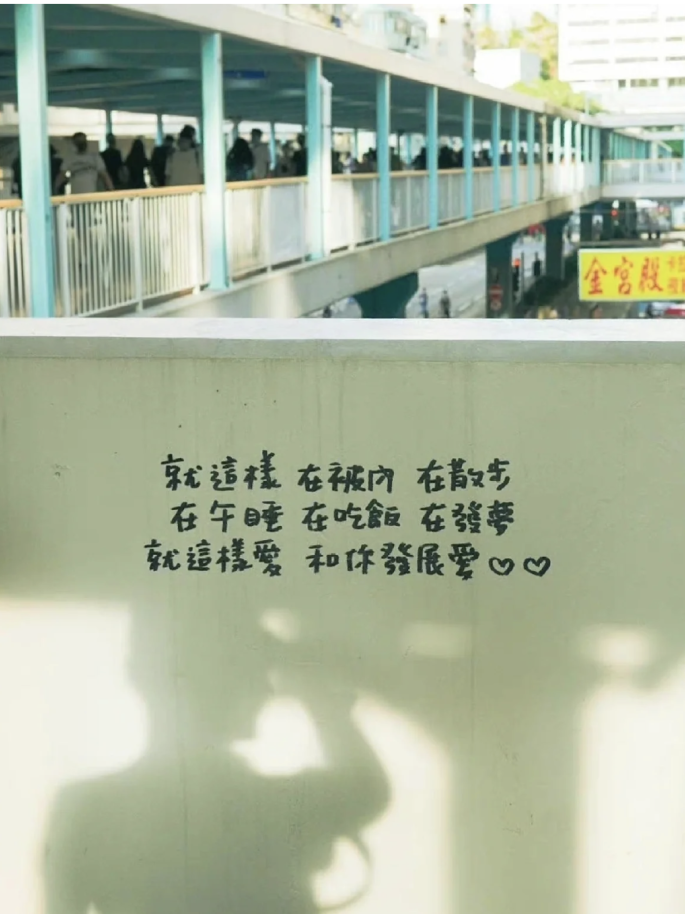 金宮殿
就這樣 在被內 在散步
在午睡 在吃飯 在發夢
就這樣愛 和你發展愛♡♡